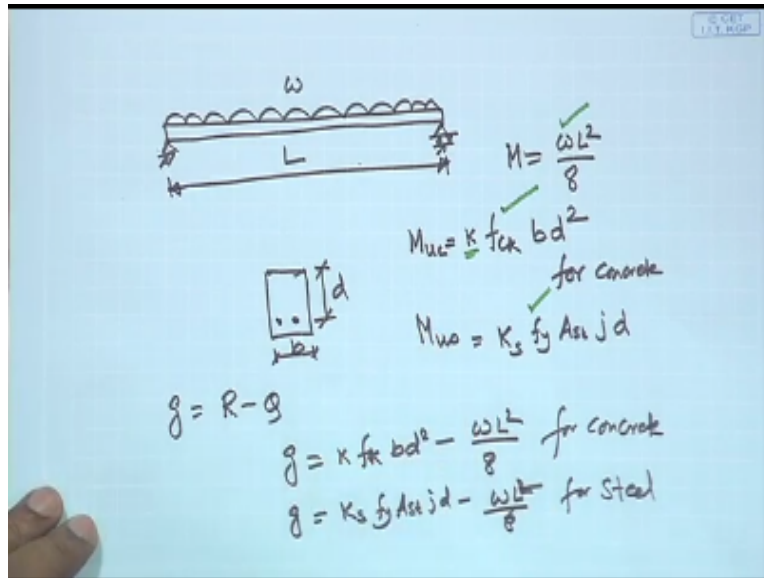 © CET
I.I.T. KGP
ω
L
M = ωL²/8
Muc = K fck bd²
for concrete
d
b
Mus = Ks fy Ast j d
g = R - Q
g = K fck bd² - ωL²/8 for concrete
g = Ks fy Ast j d - ωL²/8 for Steel